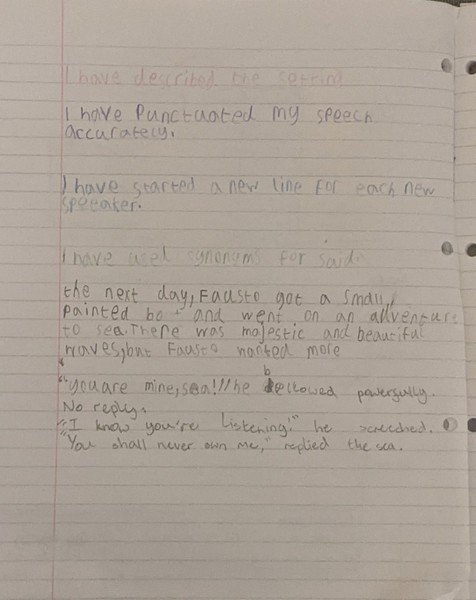 I have described the setting
I have Punctuated my speech
accurately.
I have started a new line for each new
speeaker.
I have used synonyms for said.
the next day, Fausto got a small,
painted boat and went on an adventure
to sea. There was majestic and beautiful
waves, but Fausto wanted more
"you are mine, sea!" he bellowed powerfully.
No reply.
"I know you're Listening!" he screeched.
"You shall never own me," replied the sea.